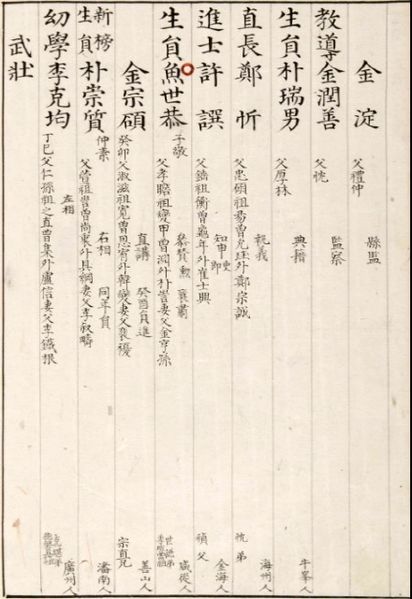 金淀 父禮仲 縣監 牛峯人
教導金潤善 父忱 監察
生員朴瑞男 父厚林 典楷
直長鄭忻 父忠碩祖易曽允珪外鄭宗誠 執義 海州人 忱弟
進士許譔 父錥祖衡曽龜年外崔士興 知申 吏 金海人 禎父
生員魚世恭 子敬 父孝瞻祖變甲曽淵外朴訔妻父金亨孫 恭贊 勲 襄肅 咸從人 世謙弟
金宗碩 癸卯父淑滋祖寬曽恩宥外韓變妻父裵優 直講 癸酉員進 善山人 宗直兄
新榜 生員朴崇質 仲素 父萱祖訔曽尚衷外具綱妻父李叙疇 右相 同年員 潘南人
幼學李克均 丁巳父仁孫祖之直曽集外盧信妻父李鐵根 左相 廣州人
武壯